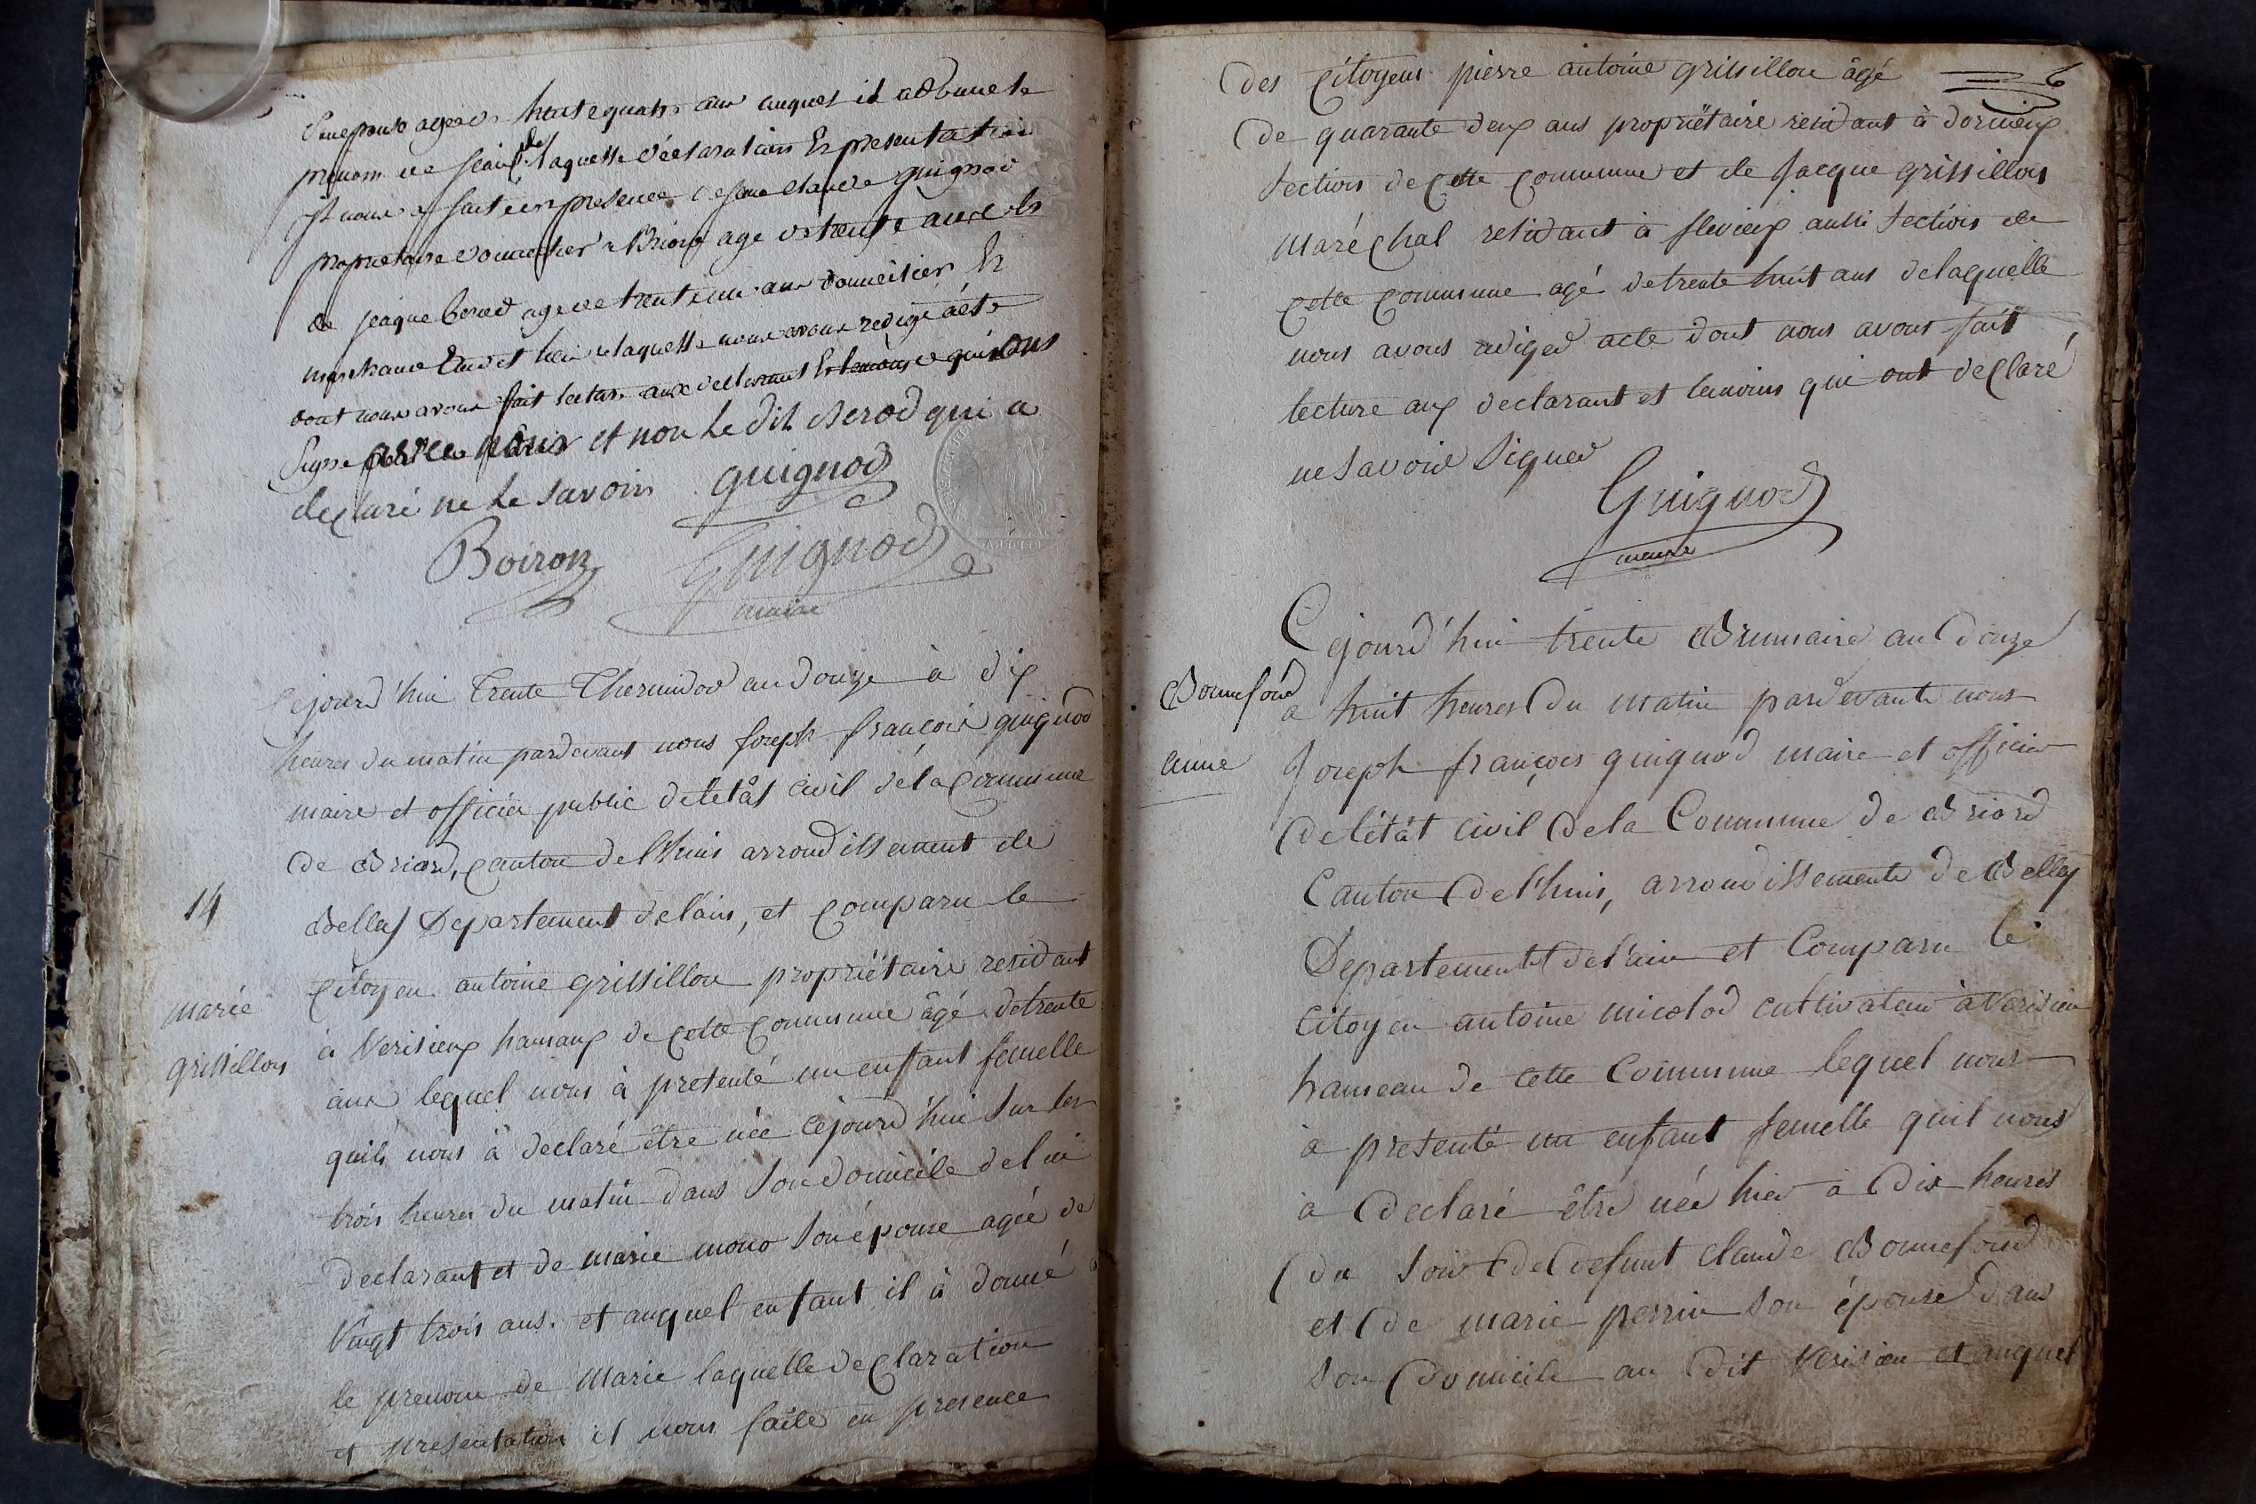 Son epouse agee de trente quatre ans auquel il a donne le
prenom de jean de laquelle declaration Et presentation
fait en presence de jean claude guignod
proprietaire domicilier a Briord age de trente ans et
de jaque berod age de trente un ans domicilier Et
marchand laquelle nous avons redigé acte
dont nous avons fait lecture aux declarant Et temoins qui ont
signe avec nous et non le dit Berod qui a
declaré ne le savoir guignod
Boiron Guignod
maire
Cejourd'hui trente Thermidor an douze à dix
heures du matin pardevant nous joseph françois guignod
maire et officier public de létât civil de la Commune
de Briord, canton de l'huis arrondissement de
14
Belley Departement de lain, et comparu le
citoyen antoine grissillon propriétaire residant
marie
à Verisieux hamaux de cette commune âgé de trente
grissillon
ans lequel nous à presenté un enfant femelle
quils nous à declaré être née cejourd'hui sur les
trois heures du matin dans son domicile de lui
declarant et de marie mono son épouse agée de
vingt trois ans. et auquel enfant il à donné
le prenom de Marie laquelle declaration
et presentation il nous faite en presence
6
des Citoyens pierre antoine grissillon âgé
de quarante deux ans propriétaire residant à dornieux
section de cette commune et de Jacque grissillon
maréchal residant à flevieux aussi section de
cette commune agé de trente huit ans de laquelle
nous avons rediger acte dont nous avons fait
lecture aux declarant et temoins qui ont declaré
ne savoir signer
Guignod
maire
Cejourd'hui trente Brumaire an douze
Bonnefond
a huit heures du matin pardevant nous
anne
Joseph françois guignod maire et officier
de létât civil de la Commune de Briord
Canton de l'huis, arrondissement de Belley
Departement de l'ain et Comparu le
citoyen antoine micolod cultivateur à Verisieu
hameau de cette Commune lequel nous
à presenté un enfant femelle quil nous
à declaré être née hier à dix heures
du soir de defunt claude Bonnefond
et de marie perrin son épouse dans
son domicile au dit Verisieu et auquel